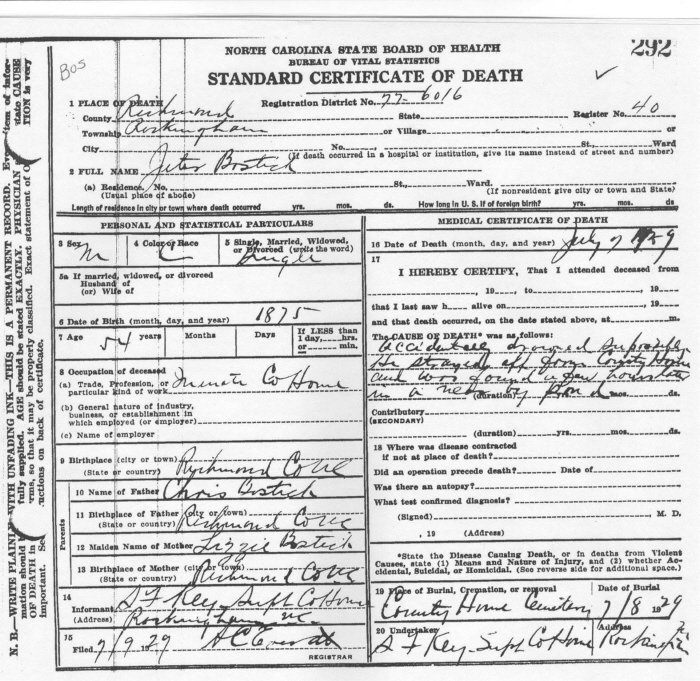 292
Bos
NORTH CAROLINA STATE BOARD OF HEALTH
BUREAU OF VITAL STATISTICS
STANDARD CERTIFICATE OF DEATH
1 PLACE OF DEATH Registration District No. 77-6016
County Richmond State Register No. 40
Township Rockingham or Village
City No. St., Ward
(If death occurred in a hospital or institution, give its name instead of street and number)
2 FULL NAME Jeter Bostick
(a) Residence. No. St., Ward.
(Usual place of abode) (If nonresident give city or town and State)
Length of residence in city or town where death occurred yrs. mos. ds. How long in U. S. if of foreign birth? yrs. mos. ds
PERSONAL AND STATISTICAL PARTICULARS
3 Sex 4 Color or Race 5 Single, Married, Widowed,
or Divorced (write the word)
M C Single
5a If married, widowed, or divorced
Husband of
(or) Wife of
6 Date of Birth (month, day, and year) 1875
7 Age 54 years Months Days If LESS than
1 day, hrs.
or min.
8 Occupation of deceased
(a) Trade, Profession, or
particular kind of work Inmate Co Home
(b) General nature of industry,
business, or establishment in
which employed (or employer)
(c) Name of employer
9 Birthplace (city or town)
(State or country) Richmond Co NC
Parents
10 Name of Father Chris Bostick
11 Birthplace of Father (city or town)
(State or country) Richmond Co NC
12 Maiden Name of Mother Lizzie Bostick
13 Birthplace of Mother (city or town)
(State or country) Richmond Co NC
14
Informant S F Key Supt Co Home
(Address) Rockingham NC
15
Filed 7/9 1929
REGISTRAR
MEDICAL CERTIFICATE OF DEATH
16 Date of Death (month, day, and year) July 7 1929
17
I HEREBY CERTIFY, That I attended deceased from
, 19 , to , 19
that I last saw h alive on , 19
and that death occurred, on the date stated above, at m.
The CAUSE OF DEATH* was as follows:
Accidental drowned supposible
He strayed off from County Home
and was found a few hours later
in a near by pond
(duration) mos. ds.
Contributory
(SECONDARY)
(duration) yrs. mos. ds.
18 Where was disease contracted
if not at place of death?
Did an operation precede death? Date of
Was there an autopsy?
What test confirmed diagnosis?
(Signed) , M. D.
, 19 (Address)
*State the Disease Causing Death, or in deaths from Violent
Causes, state (1) Means and Nature of Injury, and (2) whether Ac-
cidental, Suicidal, or Homicidal. (See reverse side for additional space.)
19 Place of Burial, Cremation, or removal Date of Burial
County Home Cemetery 7/8 1929
20 Undertaker Address
S F Key Supt Co Home Rockingham
N. B.—WRITE PLAINLY WITH UNFADING INK—THIS IS A PERMANENT RECORD. Every item of infor-
mation should fully supplied. AGE should be stated EXACTLY. PHYSICIAN state CAUSE
OF DEATH in rms, so that it may be properly classified. Exact statement of TION is very
important. See uctions on back of certificate.